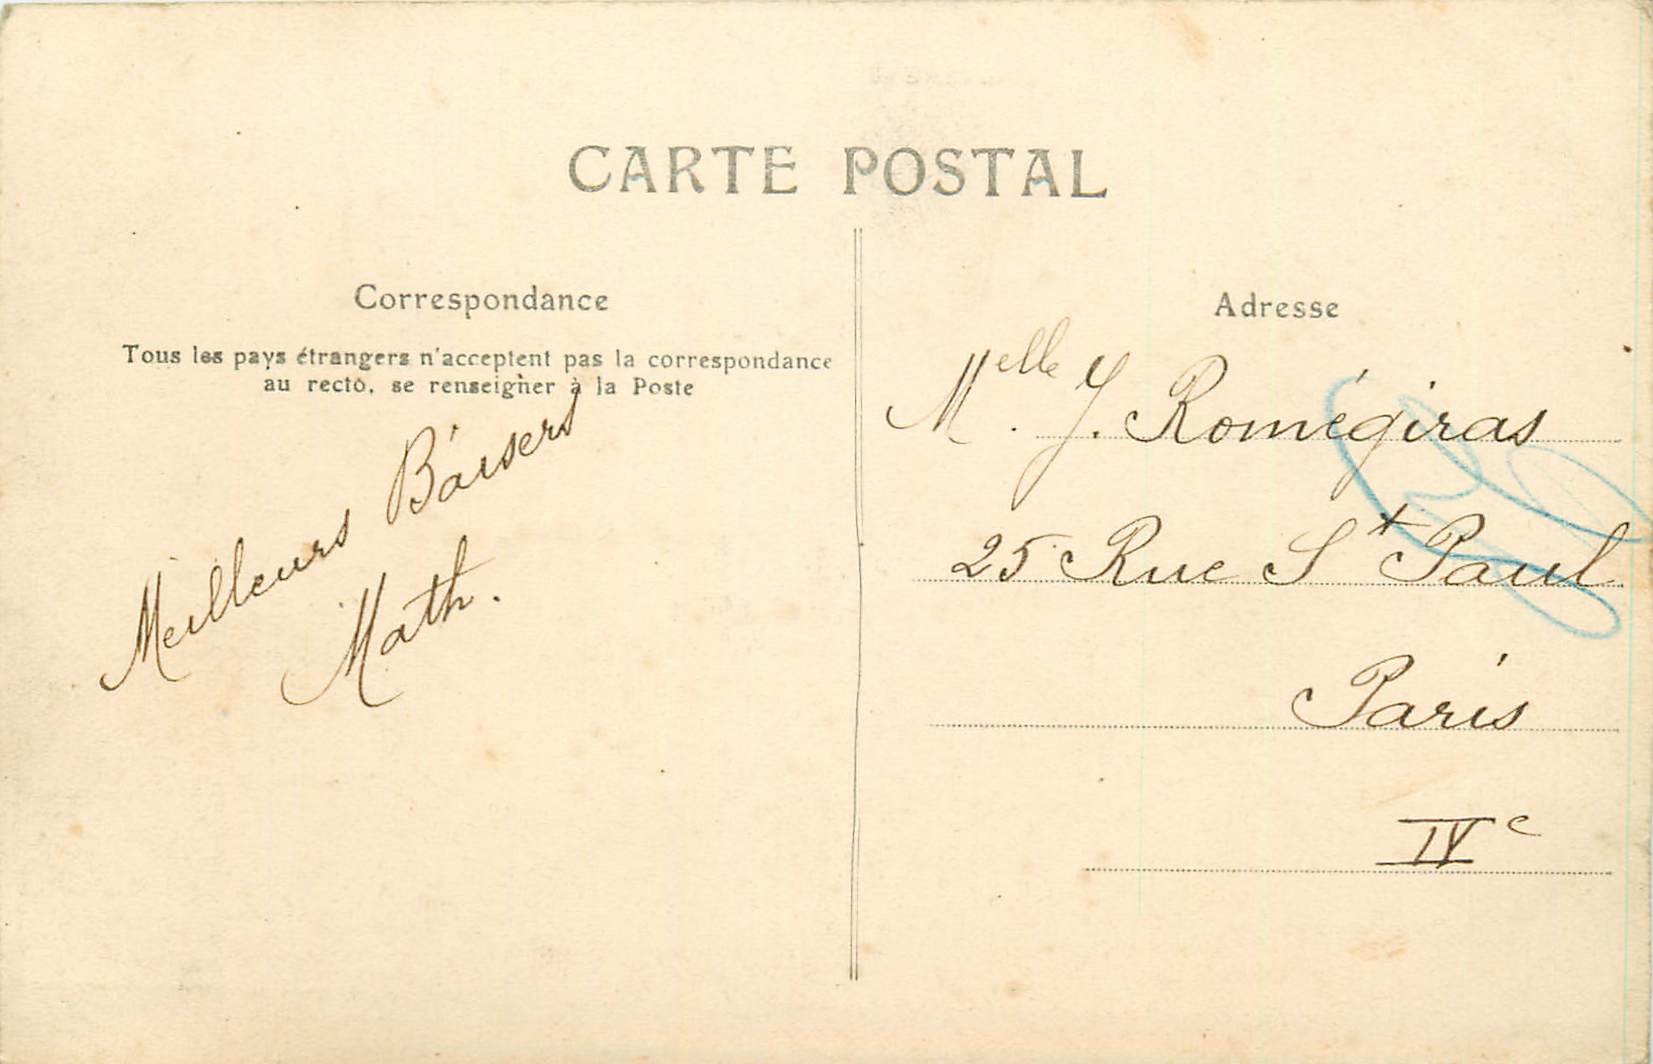 CARTE POSTAL
Correspondance
Tous les pays étrangers n'acceptent pas la correspondance
au recto, se renseigner à la Poste
Meilleurs Baisers
Math.
Adresse
Melle J. Romégiras
25 Rue St Paul
Paris
IVe